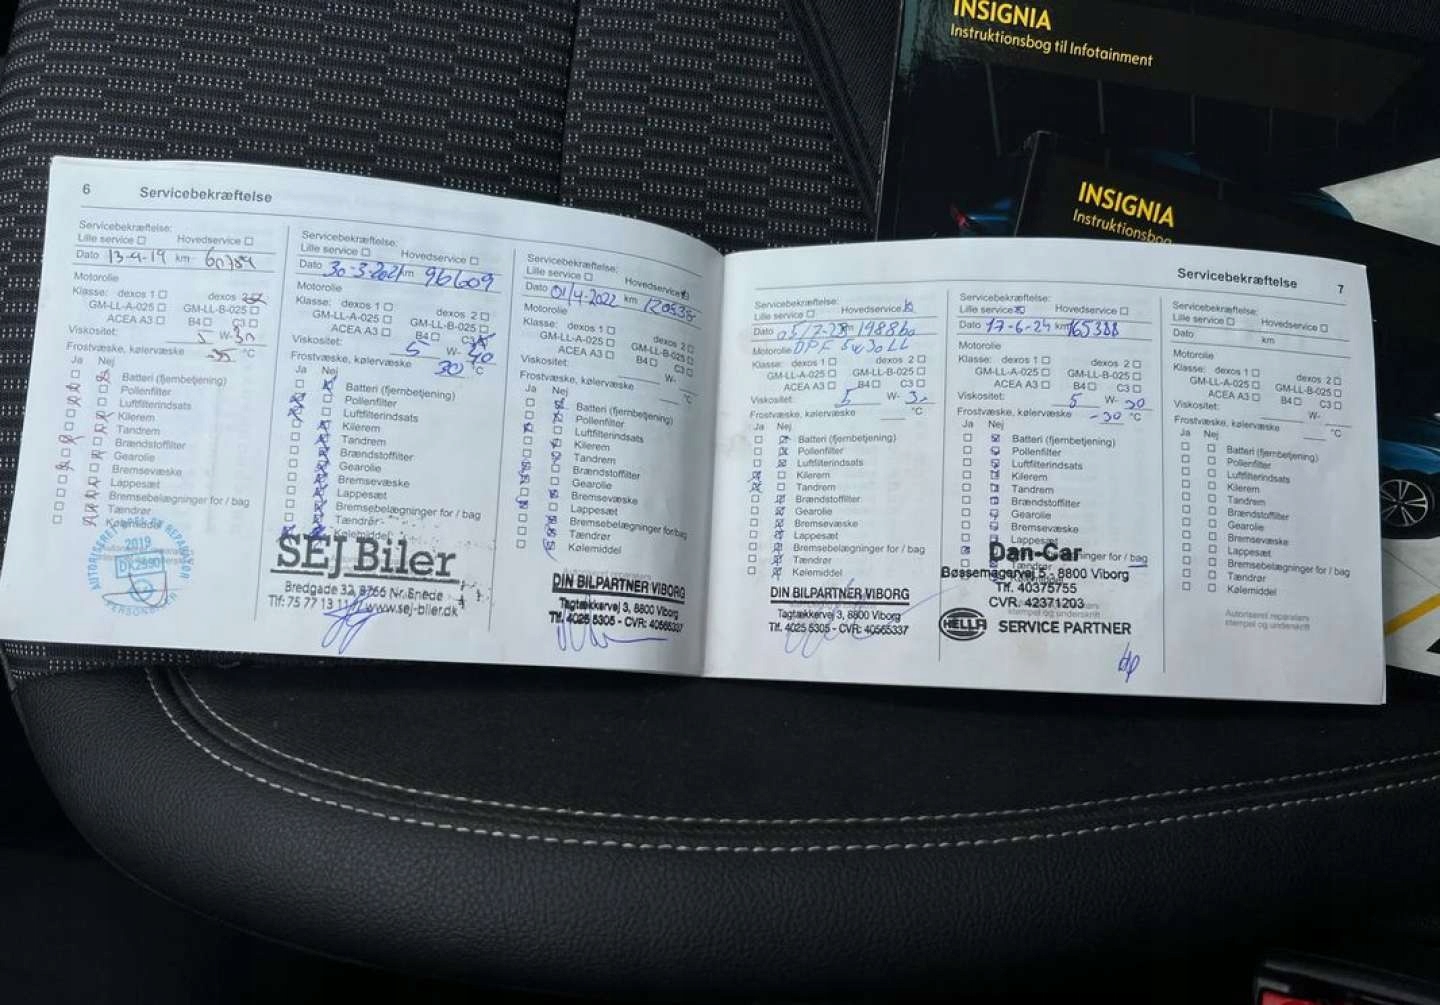 INSIGNIA
Instruktionsbog til Infotainment
INSIGNIA
Instruktionsbog
6 Servicebekræftelse
Servicebekræftelse:
Lille service Hovedservice
Dato 13-4-19 km 60754
Motorolie
Klasse: dexos 1 dexos 2
GM-LL-A-025 GM-LL-B-025
ACEA A3 B4 C3
Viskositet: 5 W- 30
Frostvæske, kølervæske -35 °C
Ja Nej
Batteri (fjernbetjening)
Pollenfilter
Luftfilterindsats
Kilerem
Tandrem
Brændstoffilter
Gearolie
Bremsevæske
Lappesæt
Bremsebelægninger for / bag
Tændrør
Kølemiddel
2019
Servicebekræftelse:
Lille service Hovedservice
Dato 30-3-2021 km 96609
Motorolie
Klasse: dexos 1 dexos 2
GM-LL-A-025 GM-LL-B-025
ACEA A3 B4 C3
Viskositet: 5 W-
Frostvæske, kølervæske °C
Ja Nej
Batteri (fjernbetjening)
Pollenfilter
Luftfilterindsats
Kilerem
Tandrem
Brændstoffilter
Gearolie
Bremsevæske
Lappesæt
Bremsebelægninger for / bag
Tændrør
Kølemiddel
SEJ Biler
Bredgade 32, 8766 Nr. Snede
Tlf: 75 77 13 11 www.sej-biler.dk
Servicebekræftelse:
Lille service Hovedservice
Dato 01/4-2022 km
Motorolie
Klasse: dexos 1 dexos 2
GM-LL-A-025 GM-LL-B-025
ACEA A3 B4 C3
Viskositet: W-
Frostvæske, kølervæske °C
Ja Nej
Batteri (fjernbetjening)
Pollenfilter
Luftfilterindsats
Kilerem
Tandrem
Brændstoffilter
Gearolie
Bremsevæske
Lappesæt
Bremsebelægninger for/bag
Tændrør
Kølemiddel
DIN BILPARTNER VIBORG
Tagtækkervej 3, 8800 Viborg
Tlf. 4025 5305 - CVR: 40565337
Servicebekræftelse 7
Servicebekræftelse:
Lille service Hovedservice
Dato km
Motorolie DPF 5w30LL
Klasse: dexos 1 dexos 2
GM-LL-A-025 GM-LL-B-025
ACEA A3 B4 C3
Viskositet: 5 W-
Frostvæske, kølervæske °C
Ja Nej
Batteri (fjernbetjening)
Pollenfilter
Luftfilterindsats
Kilerem
Tandrem
Brændstoffilter
Gearolie
Bremsevæske
Lappesæt
Bremsebelægninger for / bag
Tændrør
Kølemiddel
DIN BILPARTNER VIBORG
Tagtækkervej 3, 8800 Viborg
Tlf. 4025 5305 - CVR: 40565337
Servicebekræftelse:
Lille service Hovedservice
Dato 17-6-24 km 165388
Motorolie
Klasse: dexos 1 dexos 2
GM-LL-A-025 GM-LL-B-025
ACEA A3 B4 C3
Viskositet: 5 W- 30
Frostvæske, kølervæske -30 °C
Ja Nej
Batteri (fjernbetjening)
Pollenfilter
Luftfilterindsats
Kilerem
Tandrem
Brændstoffilter
Gearolie
Bremsevæske
Lappesæt
Dan-Car
Bøssemagervej 5 - 8800 Viborg
Tlf. 40375755
CVR: 42371203
HELLA SERVICE PARTNER
Servicebekræftelse:
Lille service Hovedservice
Dato km
Motorolie
Klasse: dexos 1 dexos 2
GM-LL-A-025 GM-LL-B-025
ACEA A3 B4 C3
Viskositet: W-
Frostvæske, kølervæske °C
Ja Nej
Batteri (fjernbetjening)
Pollenfilter
Luftfilterindsats
Kilerem
Tandrem
Brændstoffilter
Gearolie
Bremsevæske
Lappesæt
Bremsebelægninger for / bag
Tændrør
Kølemiddel
Autoriseret reparatørs
stempel og underskrift